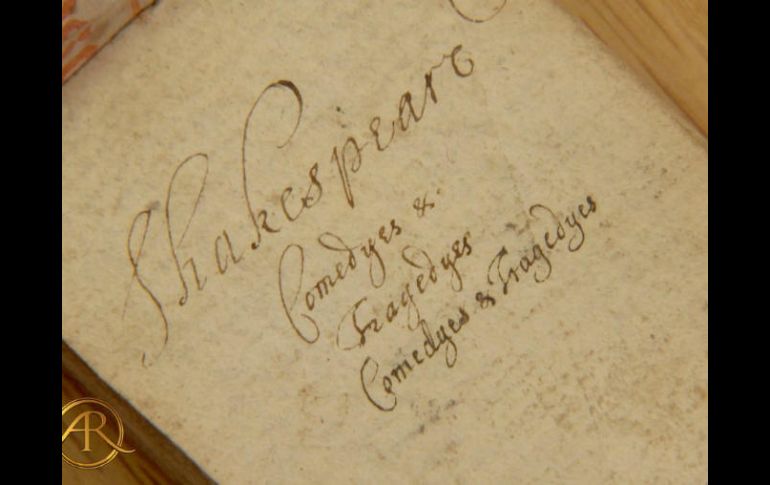 Shakespeare
Comedyes &
Tragedyes
Comedyes & Tragedyes
AR